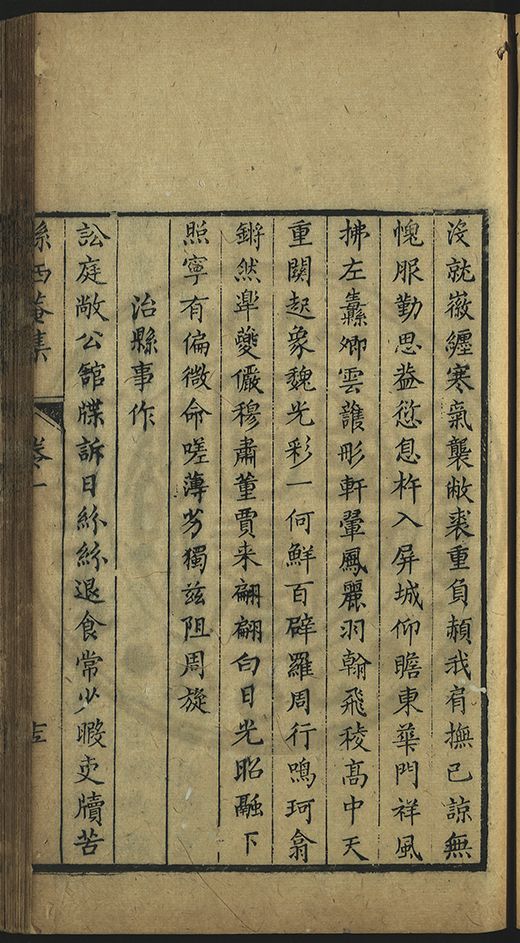 没就嶶纒寒氣襲敝裘重負頳我肩撫已諒無
愧服勤思益愆息杵入屏城仰瞻東華門祥風
拂左纛卿雲護彤軒翬鳳麗羽翰飛稜髙中天
重闕起象魏光彩一何鮮百辟羅周行鳴珂翕
鏘然臯夔儼穆肅董賈来翩翩白日光昭融下
照寧有偏微命嗟薄劣獨兹阻周旋
治縣事作
訟庭敞公舘牒訴日紛紛退食常少暇吏牘苦
孫西菴集
卷一